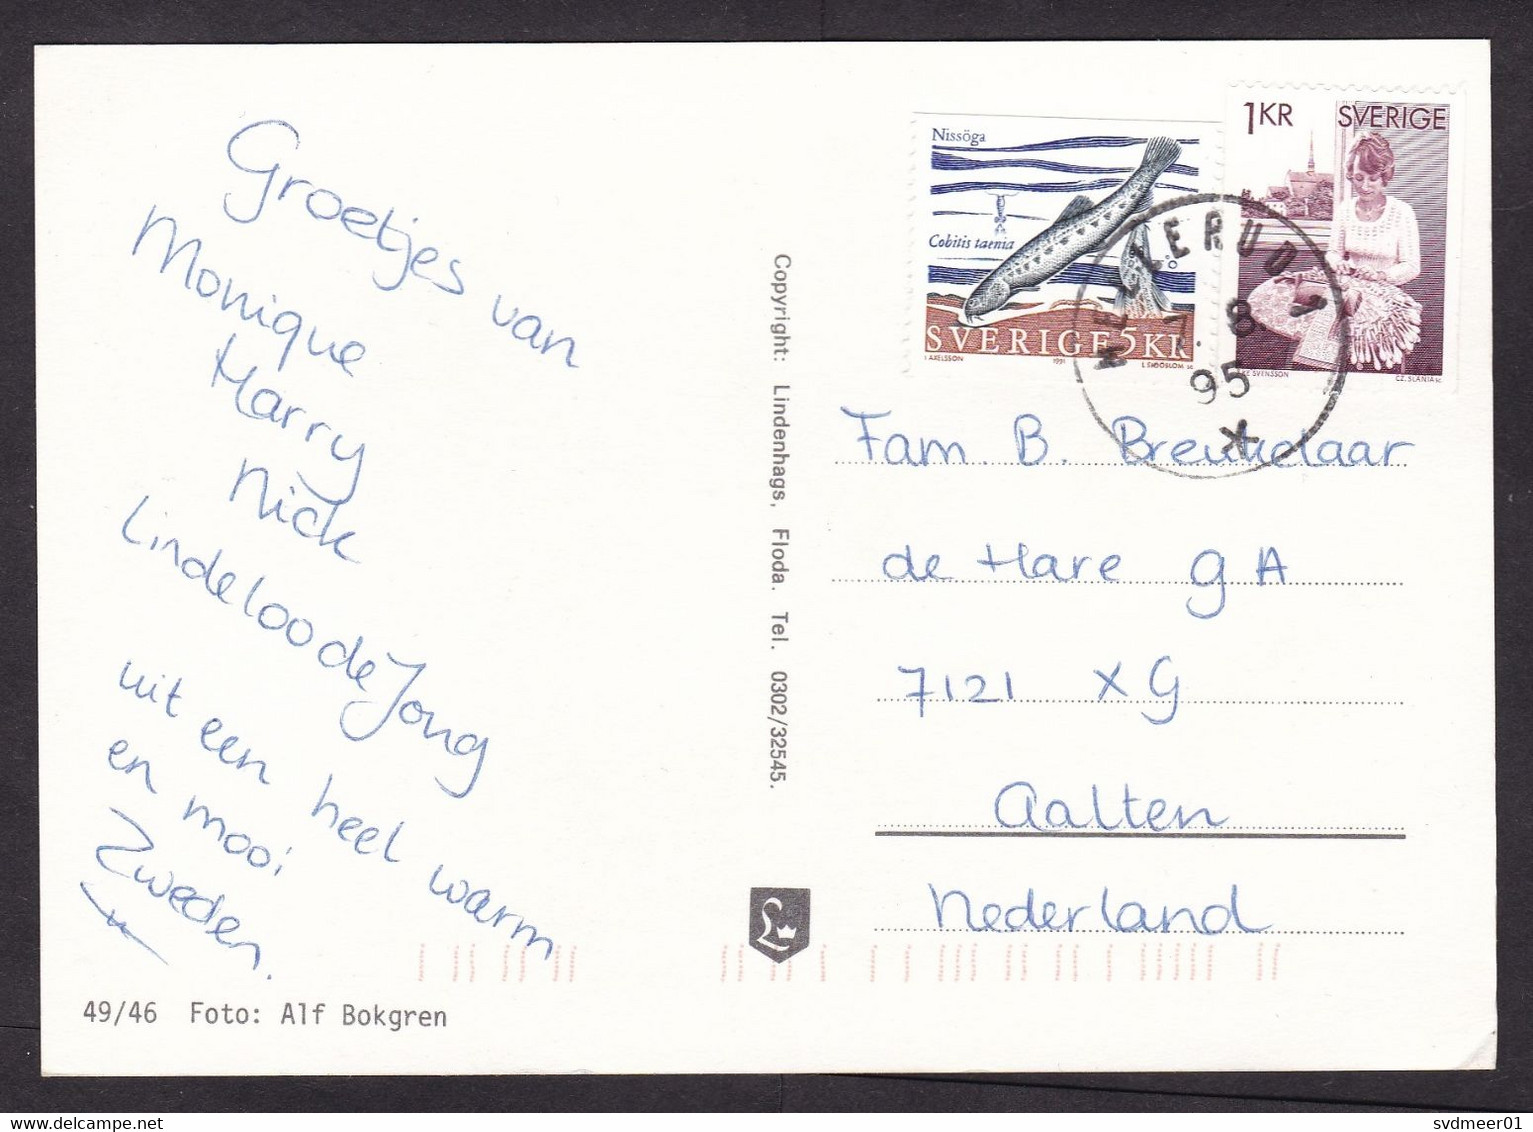 Groetjes van
Monique
Harry
Nick
Lindeloo de Jong
uit een heel warm
en mooi
Zweden.
49/46 Foto: Alf Bokgren
Copyright: Lindenhags, Floda. Tel. 0302/32545.
Nissöga
Cobitis taenia
SVERIGE 5KR
I. AXELSSON 1991 L. SJÖÖBLOM sc
1KR SVERIGE
SVENSSON CZ. SLANIA sc
MELLERUD 1
7. 8
95
Fam. B. Breukelaar
de Hare 9 A
7121 XG
Aalten
Nederland
L
svdmeer01